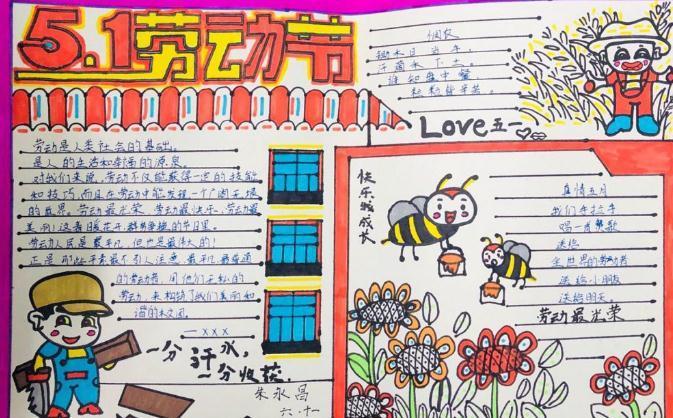 5.1劳动节
劳动是人类社会的基础。
是人的生活和幸福的源泉。
对我们来说,劳动不仅能获得一定的技能
和技巧,而且在劳动中能发现一个广阔无垠
的世界。劳动最光荣、劳动最快乐、劳动最
美丽!这春暖花开,群芳争艳的节日里。
劳动人民是最平凡,但也是最伟大的!
正是那些平素最不引人注意、最平凡、最普通
的劳动者,用他们无私的
劳动,来构筑了我们美丽和
谐的校园。
—xxx
一分汗水,
一分收获
朱永昌
六.十一
悯农
锄禾日当午,
汗滴禾下土。
谁知盘中餐
粒粒皆辛苦。
Love五一
快乐我成长
真情五月
我们手拉手
唱一首赞歌
送给
全世界的劳动者
送给小朋友
送给明天。
劳动最光荣